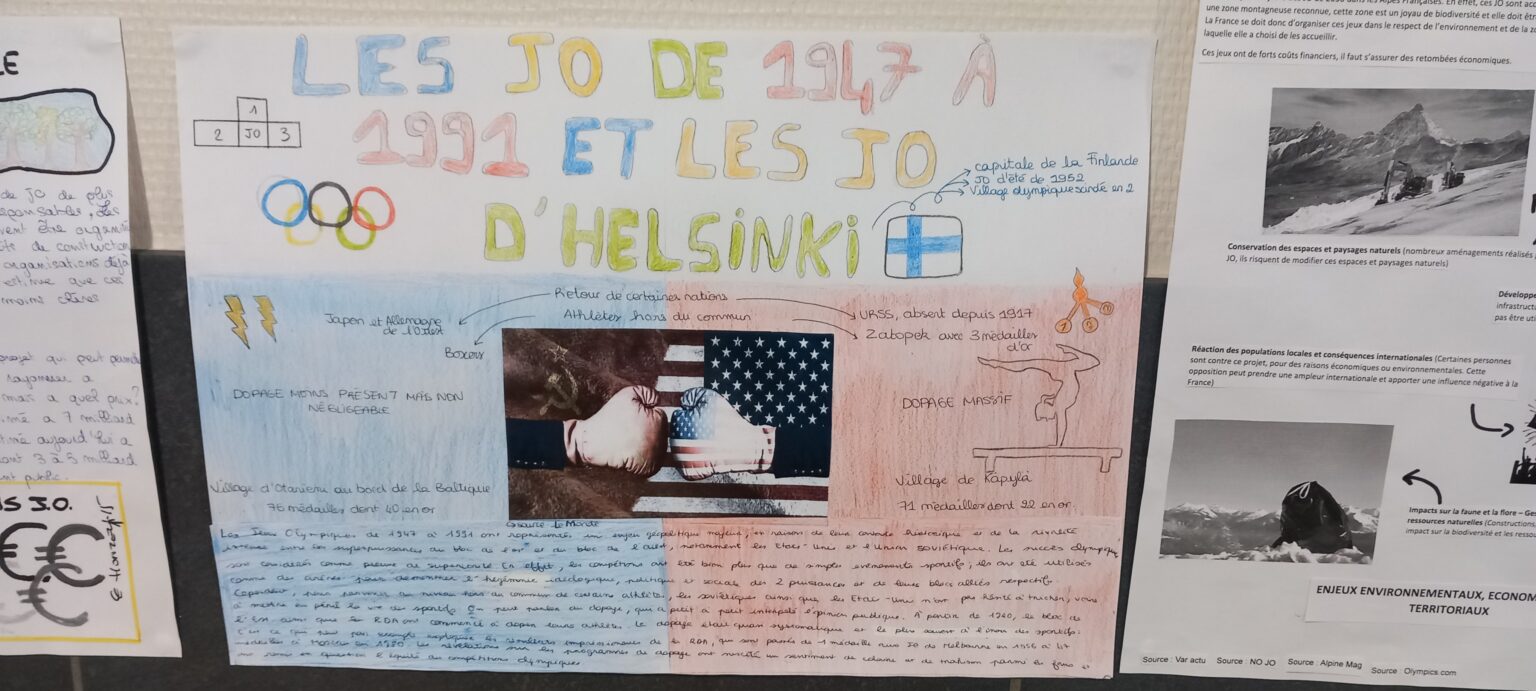 LE
de JO de plus
responsables, les
organisations déjà
moins chères
projet qui peut
mais a quel prix?
a 7 milliard
aujourd'hui a
3 à 5 milliard
public.
S J.O.
€
€€
€
LES JO DE 1947 À
1991 ET LES JO
D'HELSINKI
1
2 JO 3
capitale de la Finlande
JO d'été de 1952
Village olympique scindé en 2
Retour de certaines nations
Athlètes hors du commun
Japon et Allemagne
de l'Ouest
Boxeurs
URSS, absent depuis 1917
Zatopek avec 3 médailles
d'or
DOPAGE MOINS PRÉSENT MAIS NON
NÉGLIGEABLE
DOPAGE MASSIF
Village d'Otaniemi au bord de la Baltique
76 médailles dont 40 en or
Village de Käpylä
71 médailles dont 22 en or
source le Monde
Les Jeux Olympiques de 1947 à 1991 ont représenté un enjeu géopolitique majeur, en raison de leur contexte historique et de la rivalité
intense entre les superpuissances du bloc de l'est et du bloc de l'ouest, notamment les Etats-Unis et l'Union SOVIÉTIQUE. Les succès olympique
sont considérés comme preuve de supériorité. En effet, les compétitions ont été bien plus que de simples événements sportifs; ils ont été utilisés
comme des arènes pour démontrer l'hégémonie idéologique, politique et sociale des 2 puissances et de leurs blocs alliés respectifs.
Cependant, pour parvenir au niveau hors du commun de certains athlètes, les soviétiques ainsi que les Etats-Unis n'ont pas hésité à tricher, voire
à mettre en péril la vie des sportifs. On peut parler du dopage, qui a petit à petit interpelé l'opinion publique. À partir de 1970, le bloc de
l'Est ainsi que la RDA ont commencé à doper leurs athlètes. Le dopage était quasi systématique et le plus souvent à l'insu des sportifs.
C'est ce qui peut par exemple expliquer les résultats impressionnants de la RDA, qui sont passés de 1 médaille aux JO de Melbourne en 1956 à 47
médailles à Moscou en 1980. Les révélations sur les programmes de dopage ont suscité un sentiment de colère et de trahison parmi les fans et
ont remis en question l'équité des compétitions olympiques
une zone montagneuse reconnue, cette zone est un joyau de biodiversité et elle doit
La France se doit donc d'organiser ces jeux dans le respect de l'environnement et de la
laquelle elle a choisi de les accueillir.
Ces jeux ont de forts coûts financiers, il faut s'assurer des retombées économiques.
Conservation des espaces et paysages naturels (nombreux aménagements réalisés
JO, ils risquent de modifier ces espaces et paysages naturels)
pas être
Réaction des populations locales et conséquences internationales (Certaines personnes
sont contre ce projet, pour des raisons économiques ou environnementales. Cette
opposition peut prendre une ampleur internationale et apporter une influence négative à la
France)
Impacts sur la faune et la flore –
ressources naturelles (Constructions,
impact sur la biodiversité et les
ENJEUX ENVIRONNEMENTAUX,
TERRITORIAUX
Source : Var actu Source : NO JO Source : Alpine Mag Source : Olympics.com